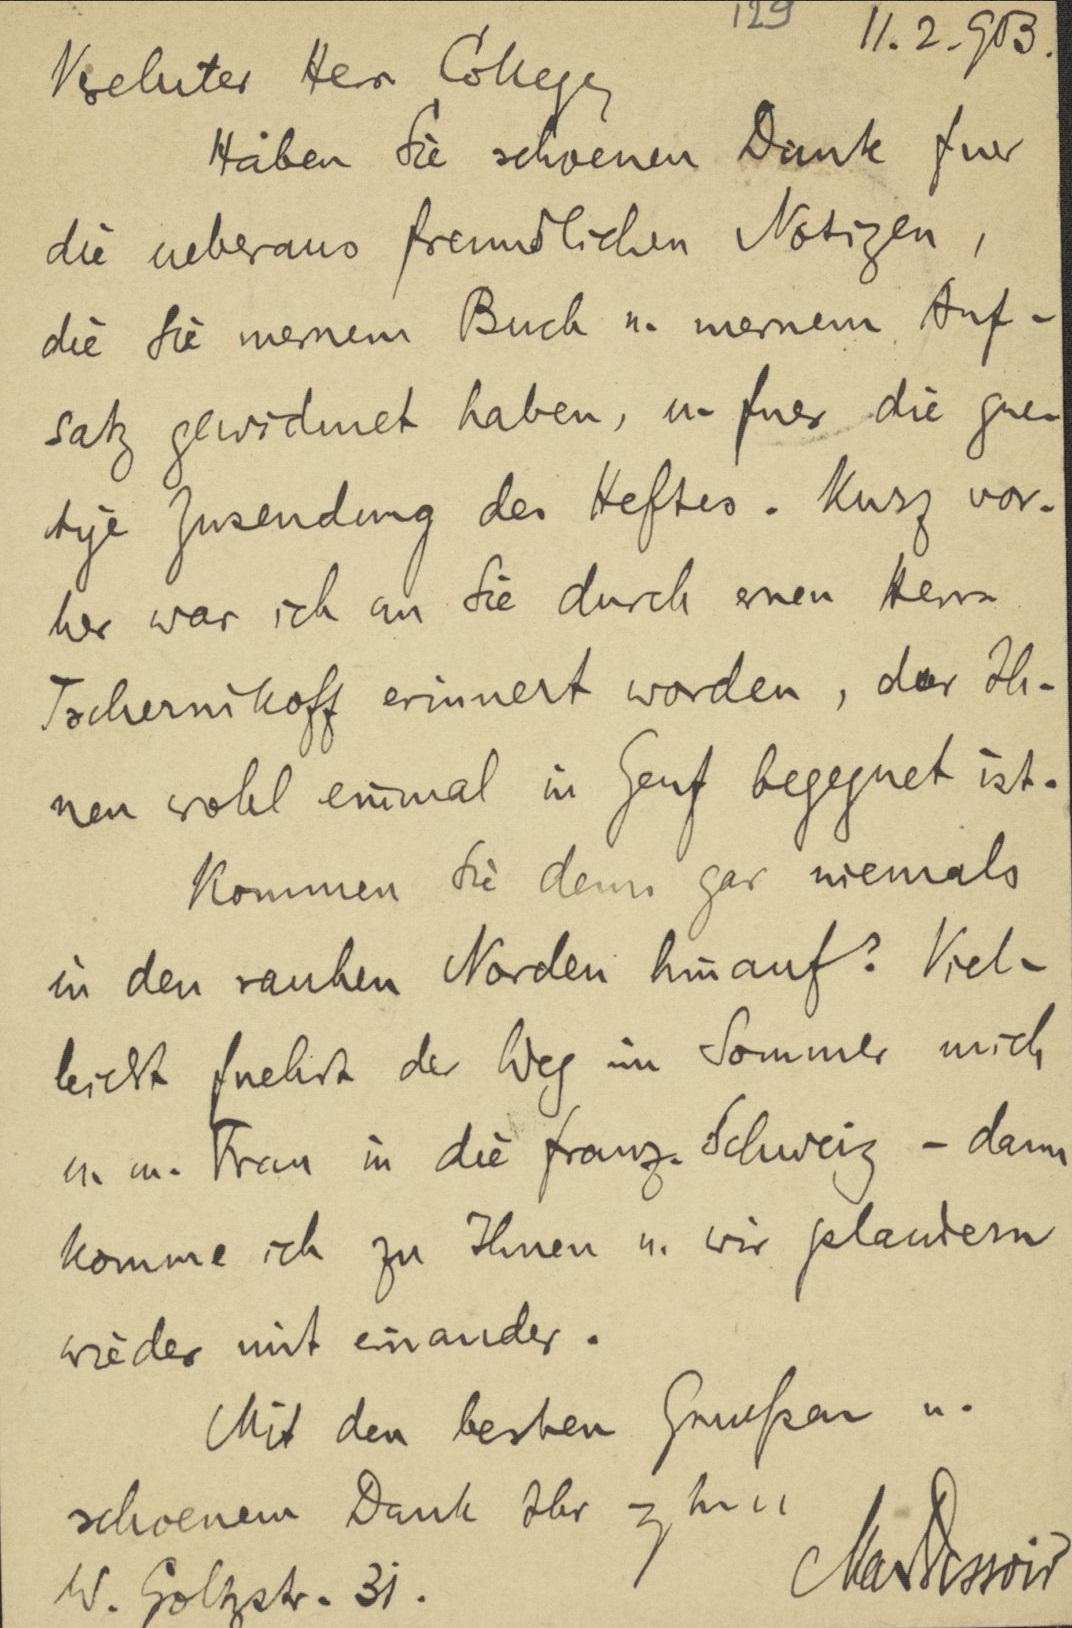 129
11.2.903.
Verehrter Herr College,
Haben Sie schoenen Dank fuer
die ueberaus freundlichen Notizen,
die Sie meinem Buch u. meinem Auf-
satz gewidmet haben, u. fuer die gue-
tige Zusendung des Heftes. Kurz vor-
her war ich an Sie durch einen Herrn
Tschernikoff erinnert worden, der Ih-
nen wohl einmal in Genf begegnet ist.
Kommen Sie denn gar niemals
in den rauhen Norden hinauf? Viel-
leicht fuehrt der Weg im Sommer mich
u. m. Frau in die franz. Schweiz - dann
komme ich zu Ihnen u. wir plaudern
wieder mit einander.
Mit den besten Gruessen u.
schoenem Dank Ihr
Max Dessoir
W. Goltzstr. 31.